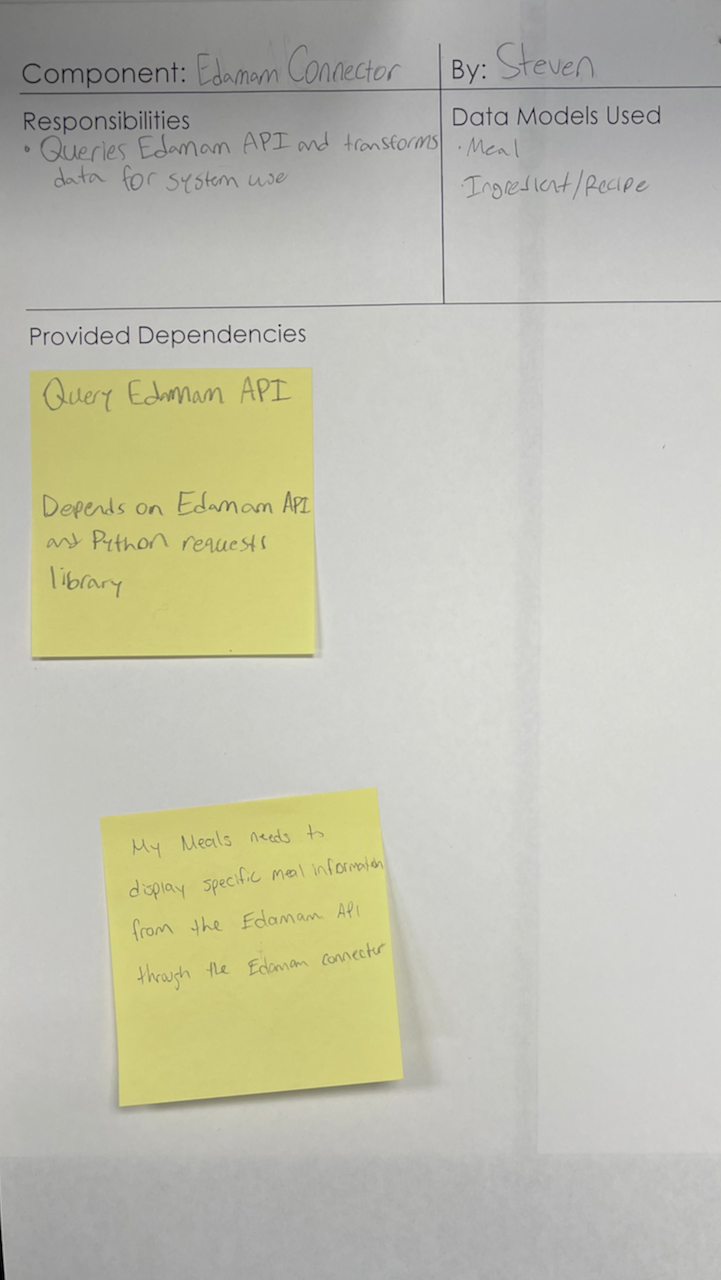 Component: Edamam Connector
By: Steven
Responsibilities
• Queries Edamam API and transforms
data for system use
Data Models Used
· Meal
· Ingredient/Recipe
Provided Dependencies
Query Edamam API
Depends on Edamam API
and Python requests
library
My Meals needs to
display specific meal information
from the Edamam API
through the Edamam connector